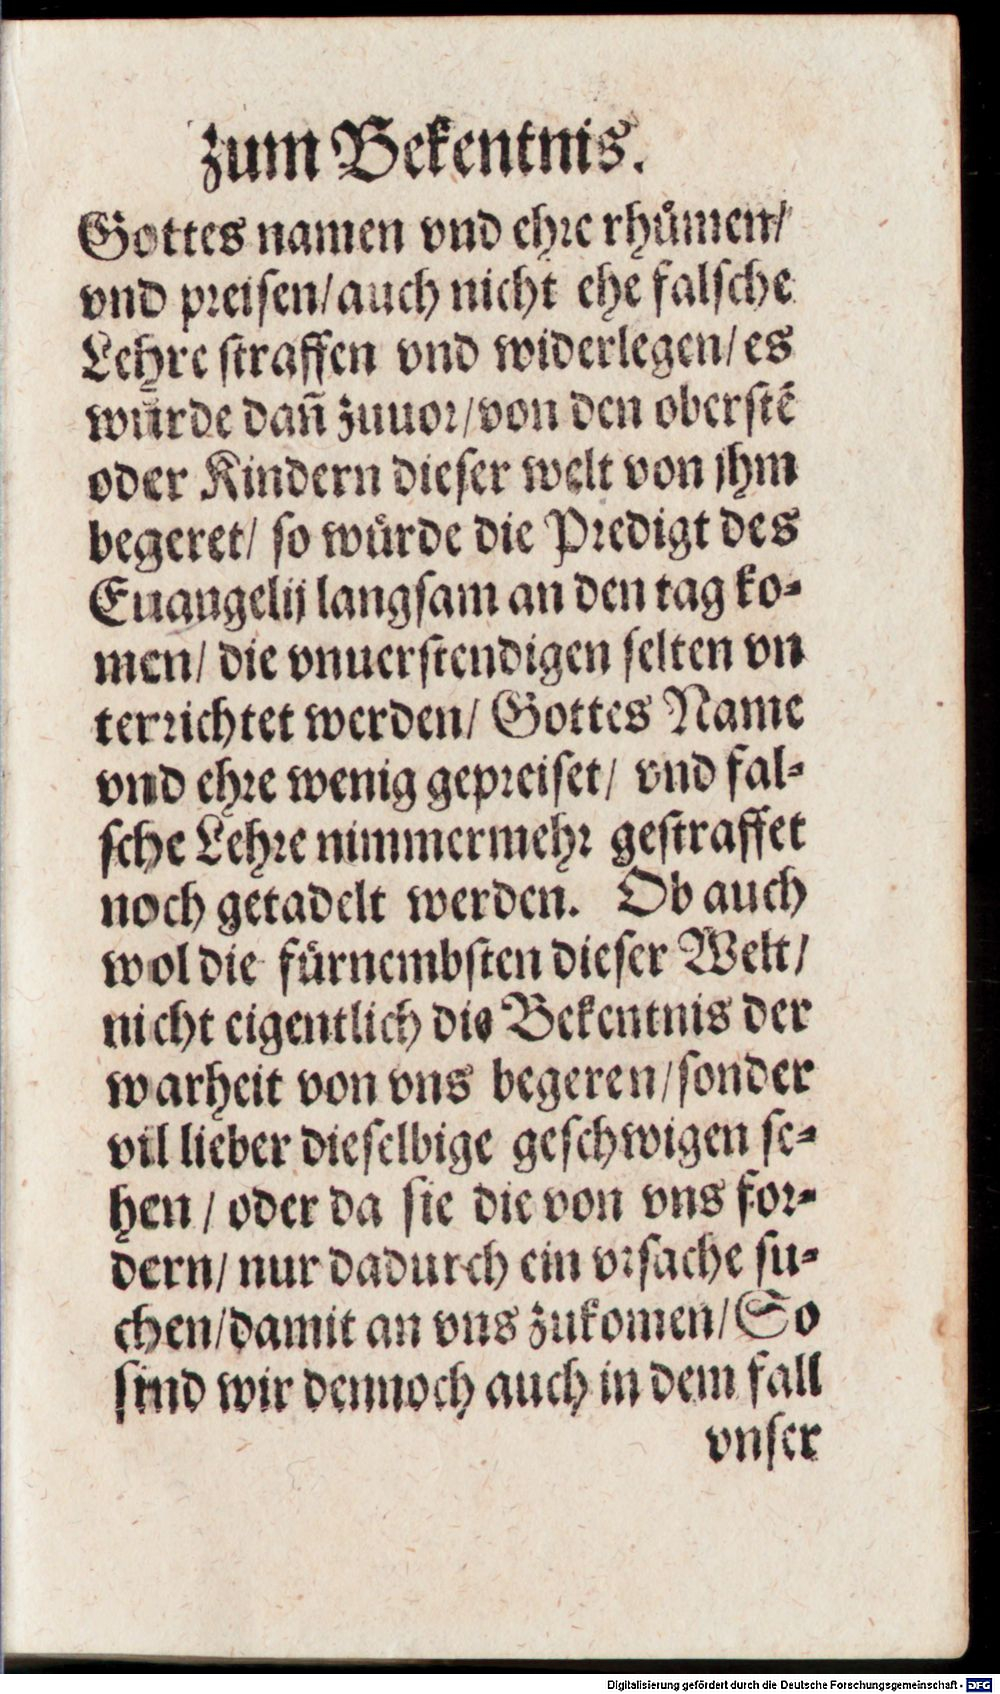 zum Bekentnis.
Gottes namen vnd ehre rhůmen/
vnd preisen/auch nicht ehe falsche
Lehre straffen vnd widerlegen/es
wůrde dañ zuuor/von den oberstē
oder Kindern dieser welt von jhm
begeret/ so wůrde die Predigt des
Euangelij langsam an den tag ko-
men/ die vnuerstendigen selten vn
terrichtet werden/ Gottes Name
vnd ehre wenig gepreiset/ vnd fal-
sche Lehre nimmermehr gestraffet
noch getadelt werden. Ob auch
wol die fürnembsten dieser Welt/
nicht eigentlich die Bekentnis der
warheit von vns begeren/sonder
vil lieber dieselbige geschwigen se-
hen / oder da sie die von vns for-
dern/ nur dadurch ein vrsache su-
chen/damit an vns zukomen/So
sind wir dennoch auch in dem fall
vnser
Digitalisierung gefördert durch die Deutsche Forschungsgemeinschaft - DFG